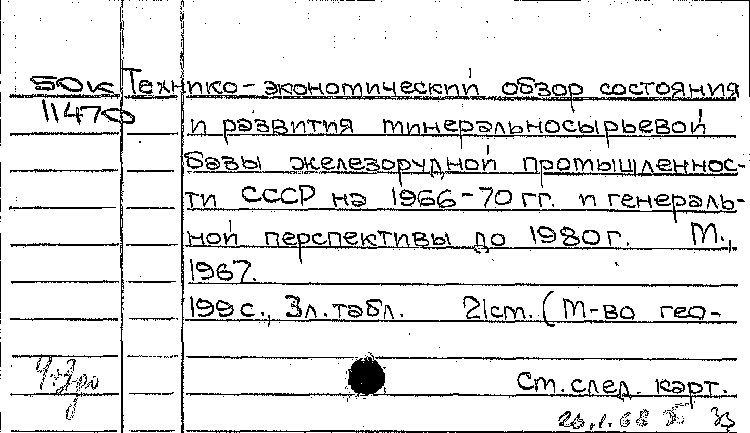 50к Техниκо-экономический обзор состояния
11470 и развития минеральносырьевой
базы железорудной промышленнос-
ти СССР на 1966-70 гг. и генераль-
ной перспективы до 1980 г. М.,
1967.
199 с., 3 л. табл. 21 см. (М-во гео-
Ст. след. карт.
26.1.68